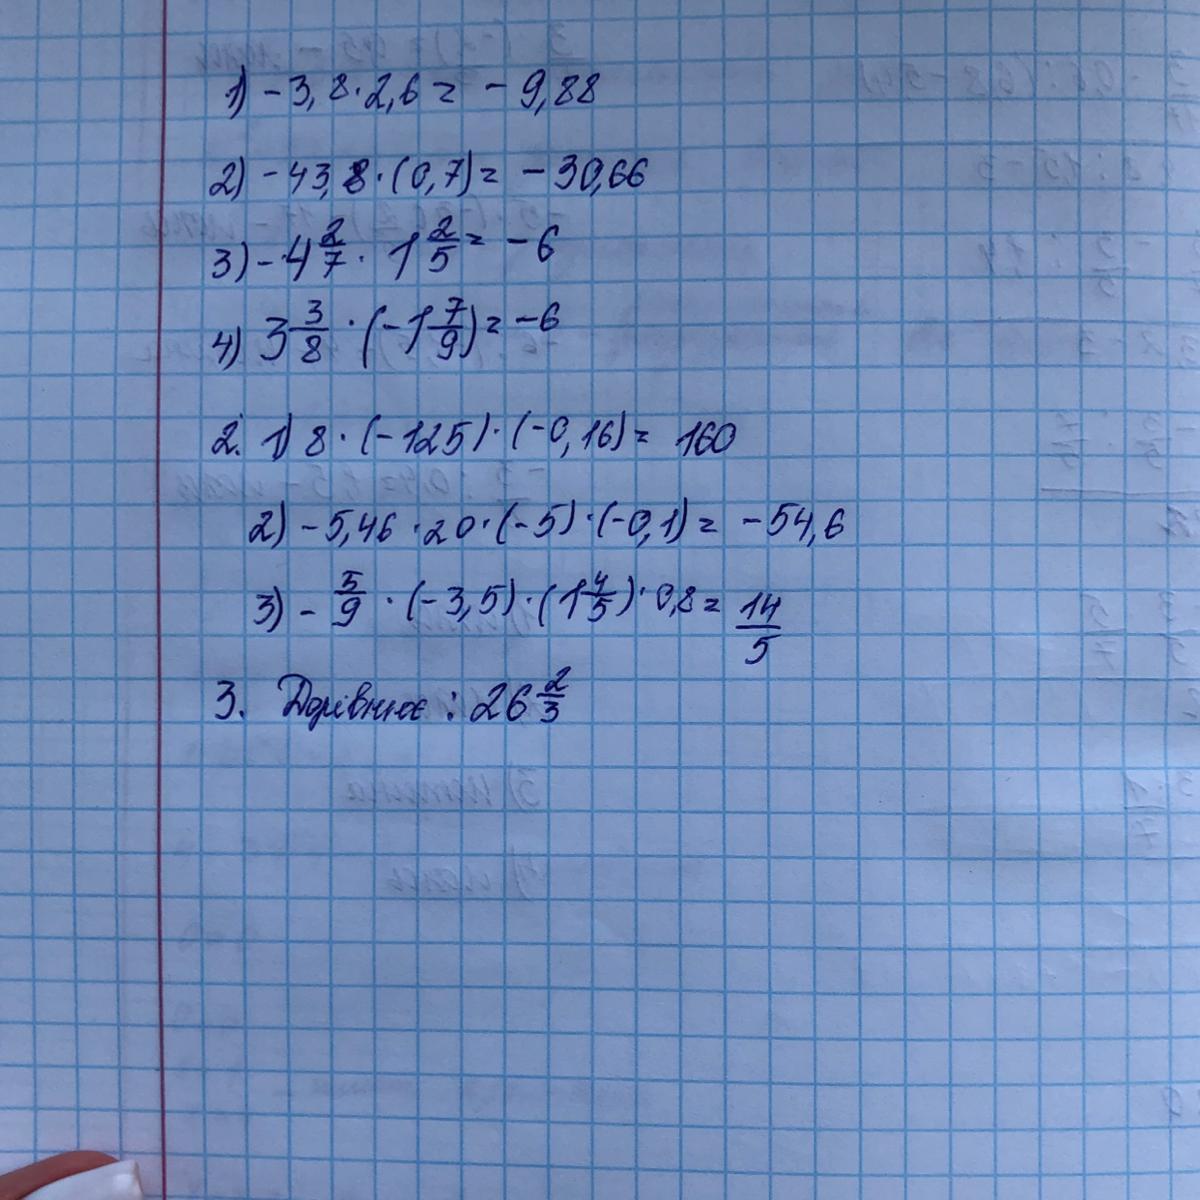 1) - 3,8 · 2,6 = - 9,88
2) - 43,8 · (0,7) = - 30,66
3) - 4 2/7 · 1 2/5 = - 6
4) 3 3/8 · (- 1 7/9) = - 6
2. 1) 8 · (-125) · (-0,16) = 160
2) - 5,46 · 20 · (-5) · (-0,1) = - 54,6
3) - 5/9 · (-3,5) · (1 4/5) · 0,8 = 14/5
3. Дорівнює : 26 2/3